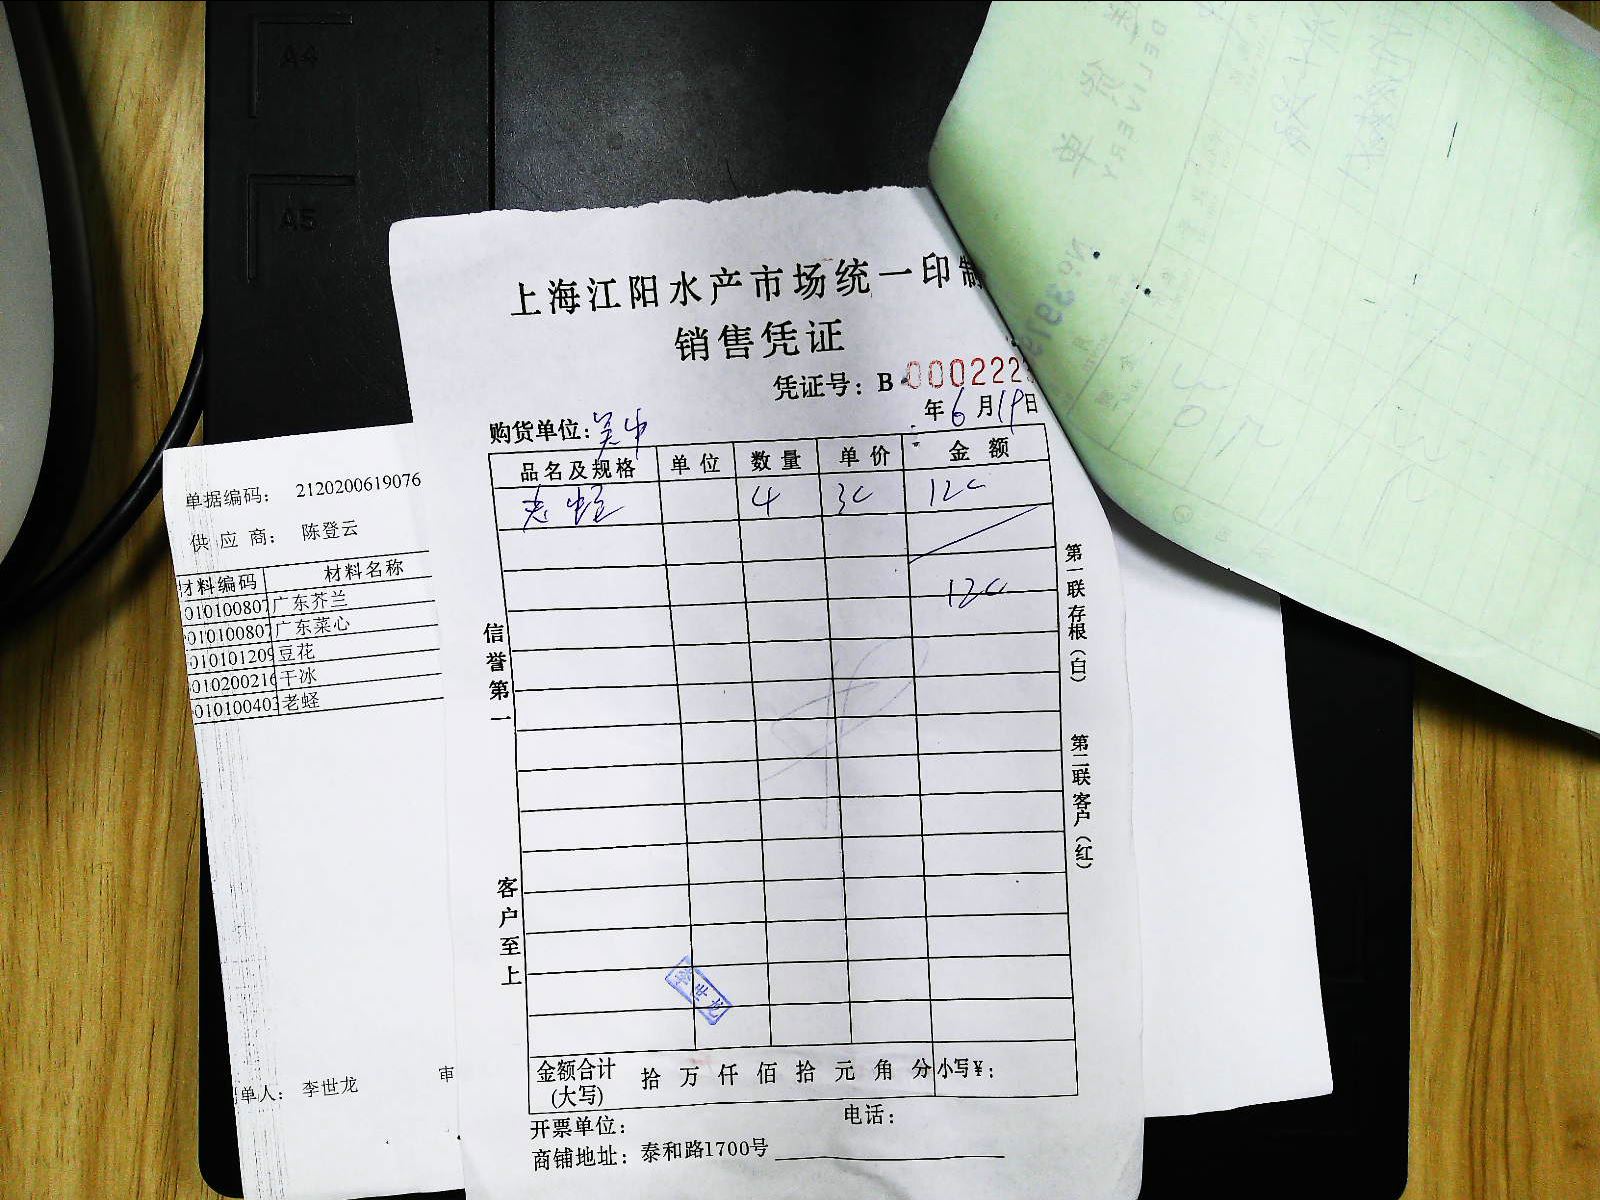 A4
A5
上海江阳水产市场统一印制
销售凭证
凭证号：B 000222
年6月19日
购货单位：吴中
品名及规格 单位 数量 单价 金额
老蛏 4 30 120
120
信誉第一
客户至上
第一联存根（白）
第二联客户（红）
李世龙
金额合计 拾万仟佰拾元角分 小写¥：
(大写)
开票单位： 电话：
商铺地址：泰和路1700号
单据编码： 2120200619076
供应商： 陈登云
材料编码 材料名称
010100807 广东芥兰
010100807 广东菜心
010101209 豆花
010200216 干冰
010100403 老蛏
单人： 李世龙 审
DELIVERY